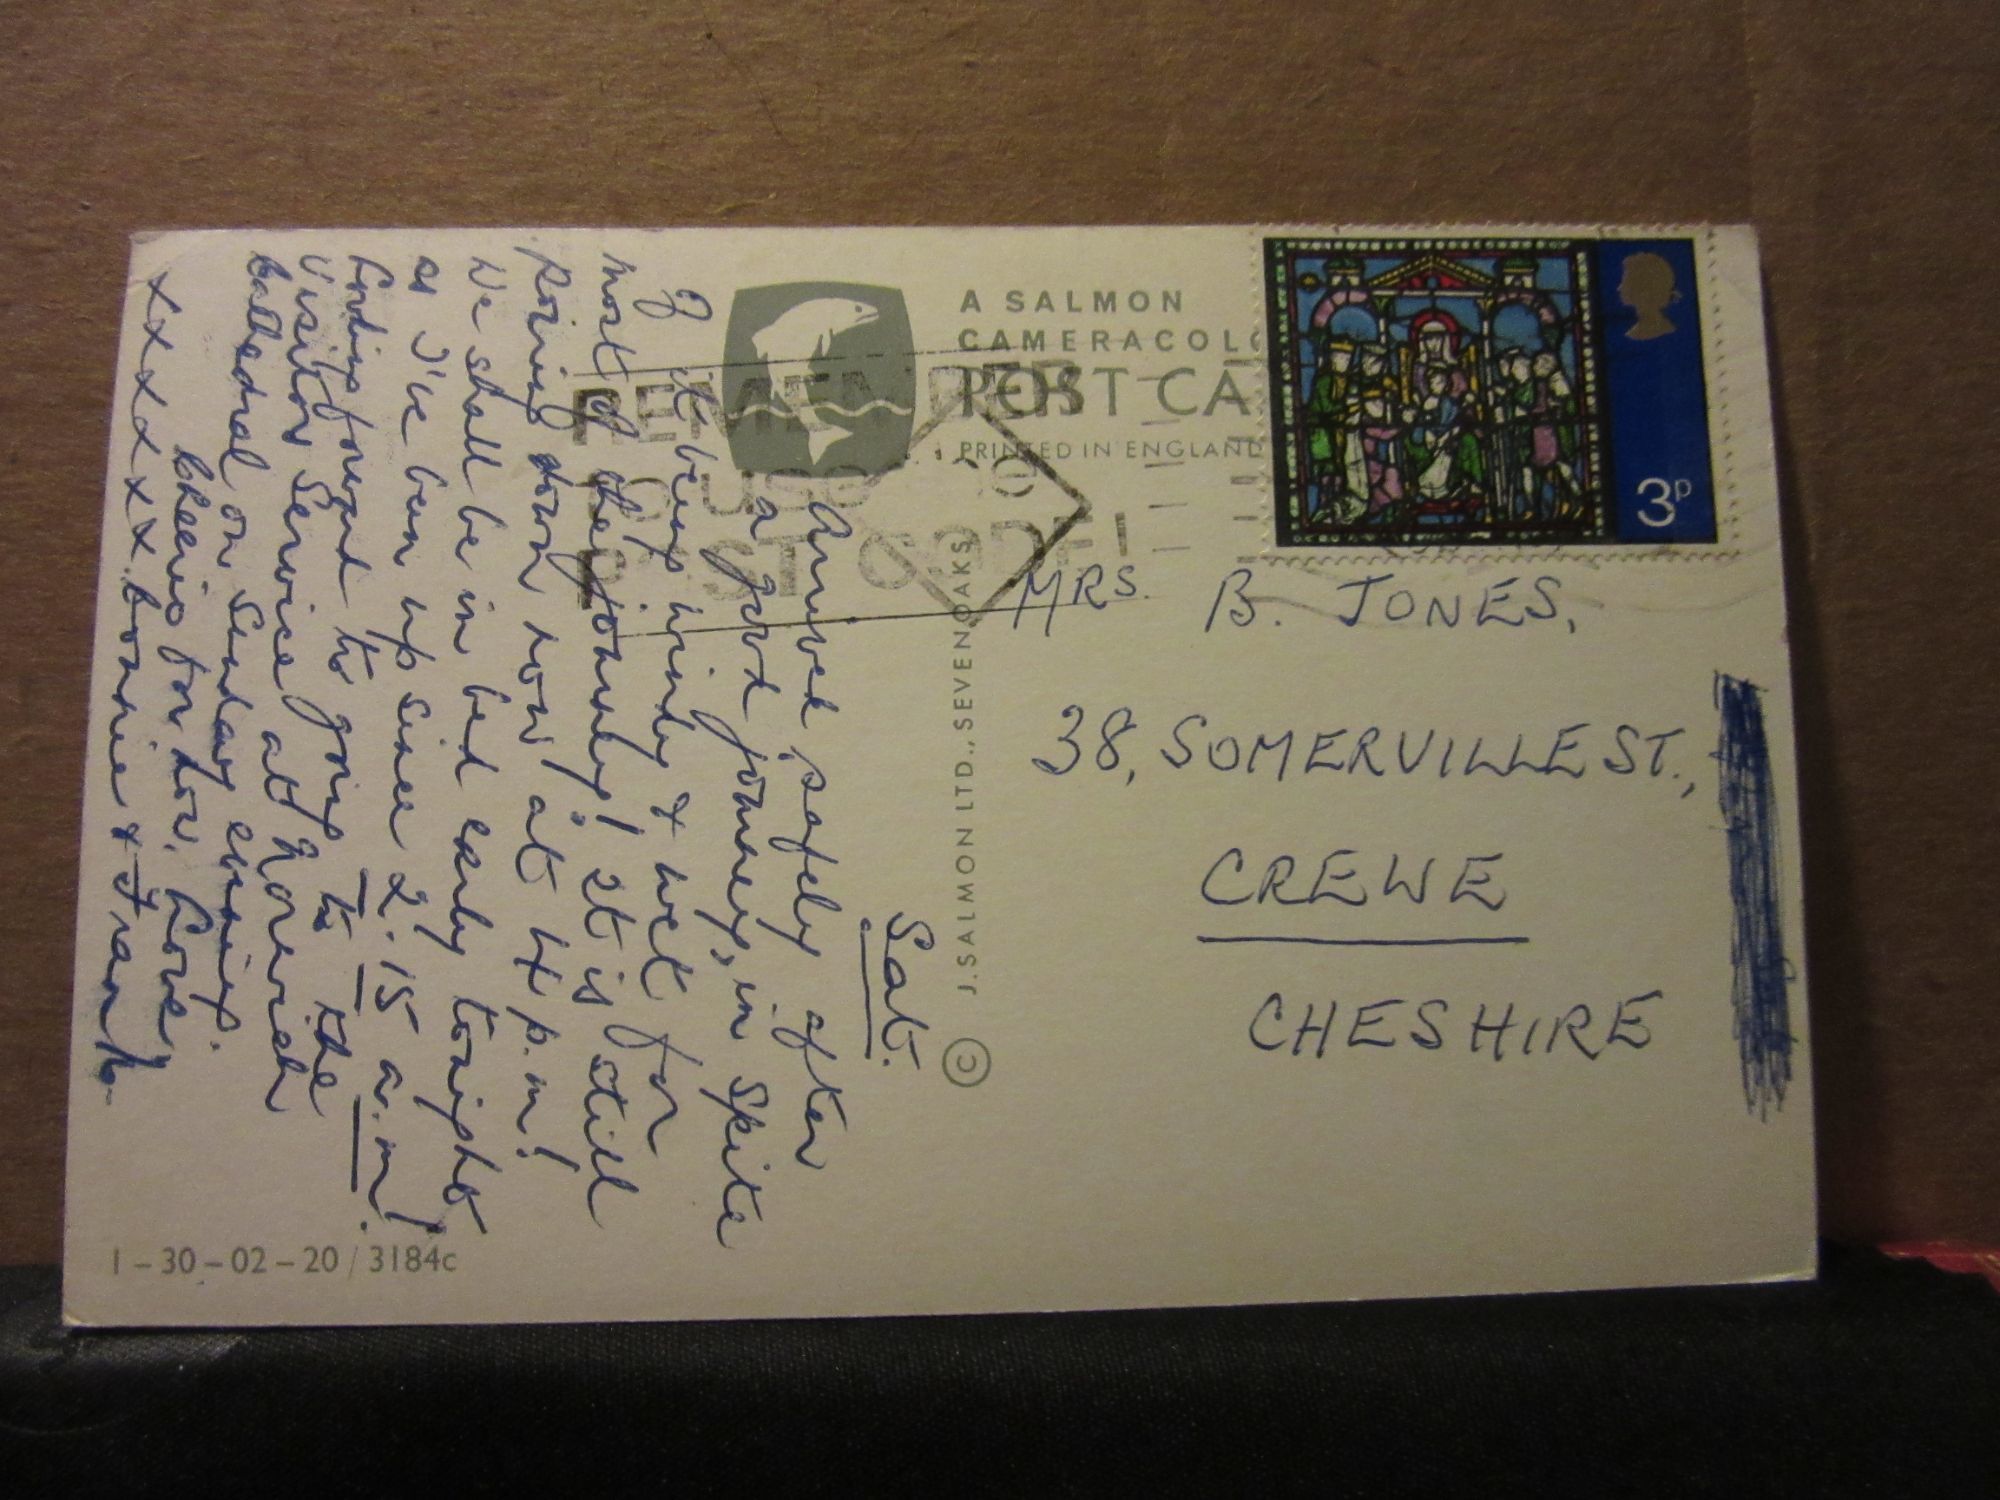 Sat.
Arrived safely after
a good journey, in spite
of it being windy & wet for
most of the journey! It is still
pouring down now at 4 p.m!
We shall be in bed early tonight
as I've been up since 2.15 a.m!
Looking forward to going to the
Visitors Service at Norwich
Cathedral on Sunday evening.
Cheerio for now, Love,
xxxxxxx Bonnie & Frank
A SALMON
CAMERACOL
POST CA
PRINTED IN ENGLAND
REMEMBER
TO USE
POST CODE!
3p
© J. SALMON LTD., SEVENOAKS
MRS. B. JONES,
38, SOMERVILLE ST.,
CREWE
CHESHIRE
1-30-02-20 / 3184c